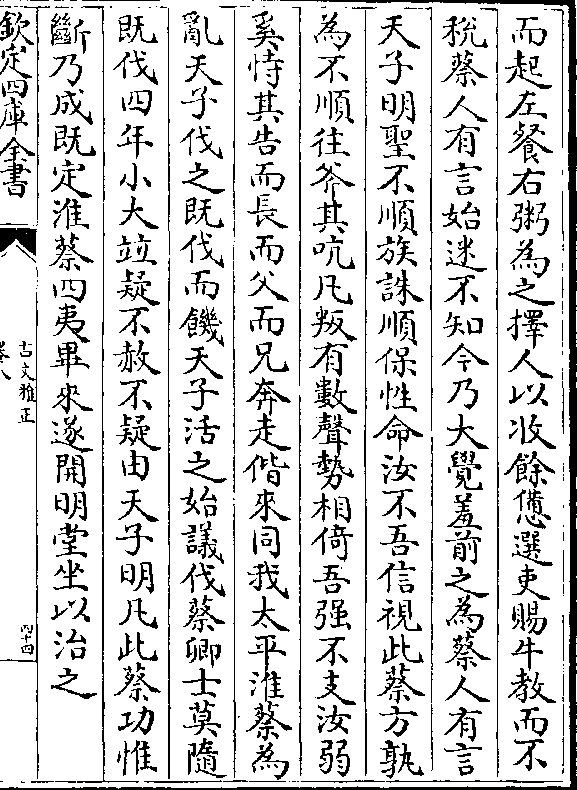 而起左餐右粥為之擇人以收餘憊選吏賜牛教而不
稅蔡人有言始迷不知今乃大覺羞前之為蔡人有言
天子明聖不順族誅順保性命汝不吾信視此蔡方孰
為不順往斧其吭凡叛有數聲勢相倚吾强不支汝弱
奚恃其告而長而父而兄奔走偕來同我太平淮蔡為
亂天子伐之既伐而饑天子活之始議伐蔡卿士莫隨
既伐四年小大竝疑不赦不疑由天子明凡此蔡功惟
斷乃成既定淮蔡四夷畢來遂開明堂坐以治之
欽定四庫全書
古文雅正
卷八
四十四